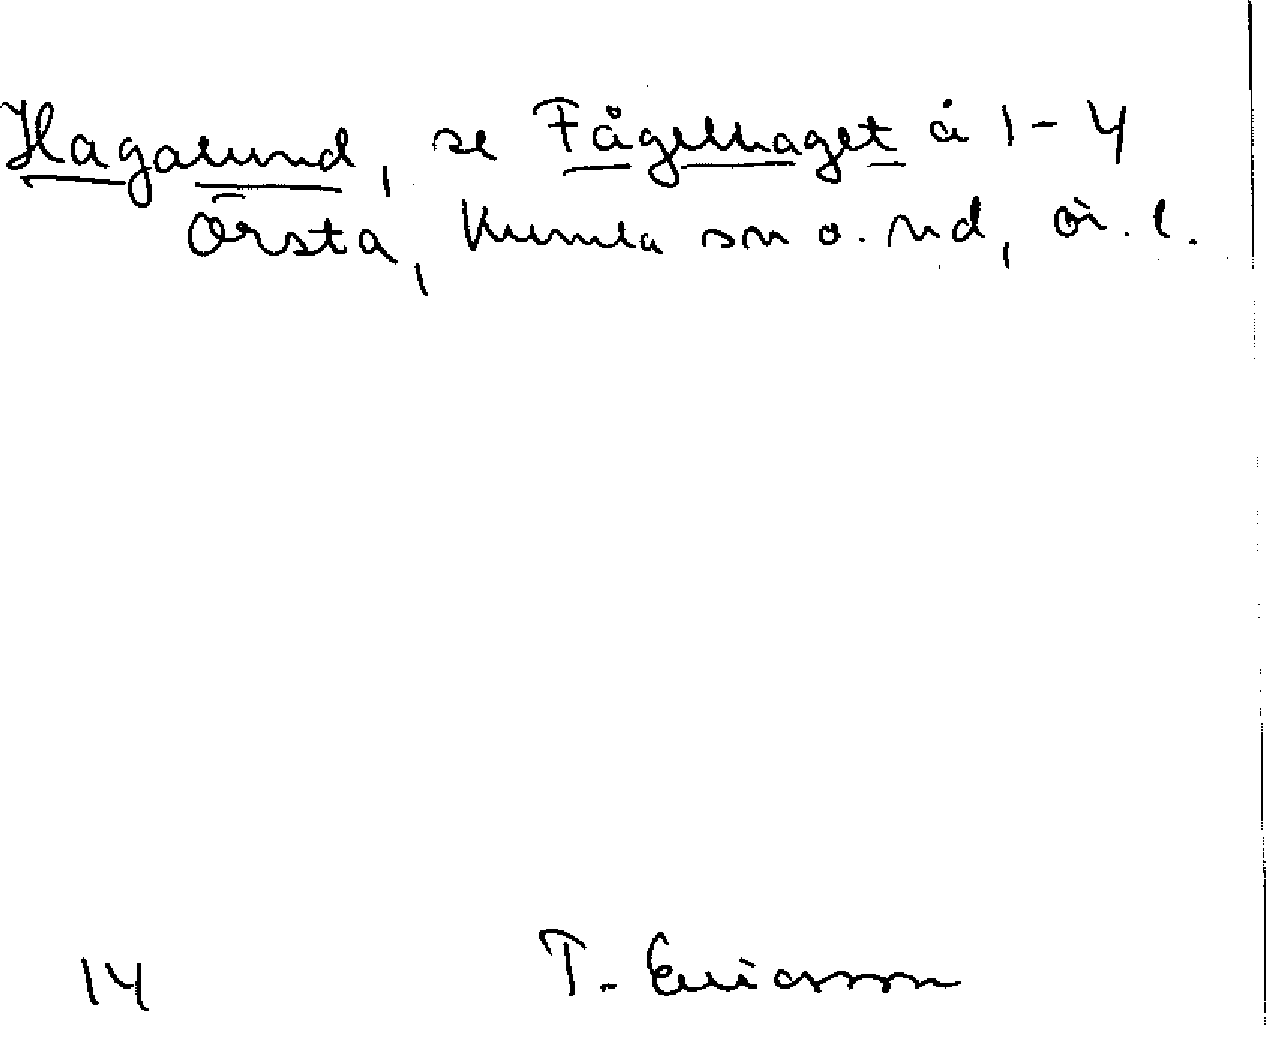 Hagalund, se Fågelhaget å 1-4
Örsta, Kumla sn o. hd, ö. l.
14 T. Ericsson